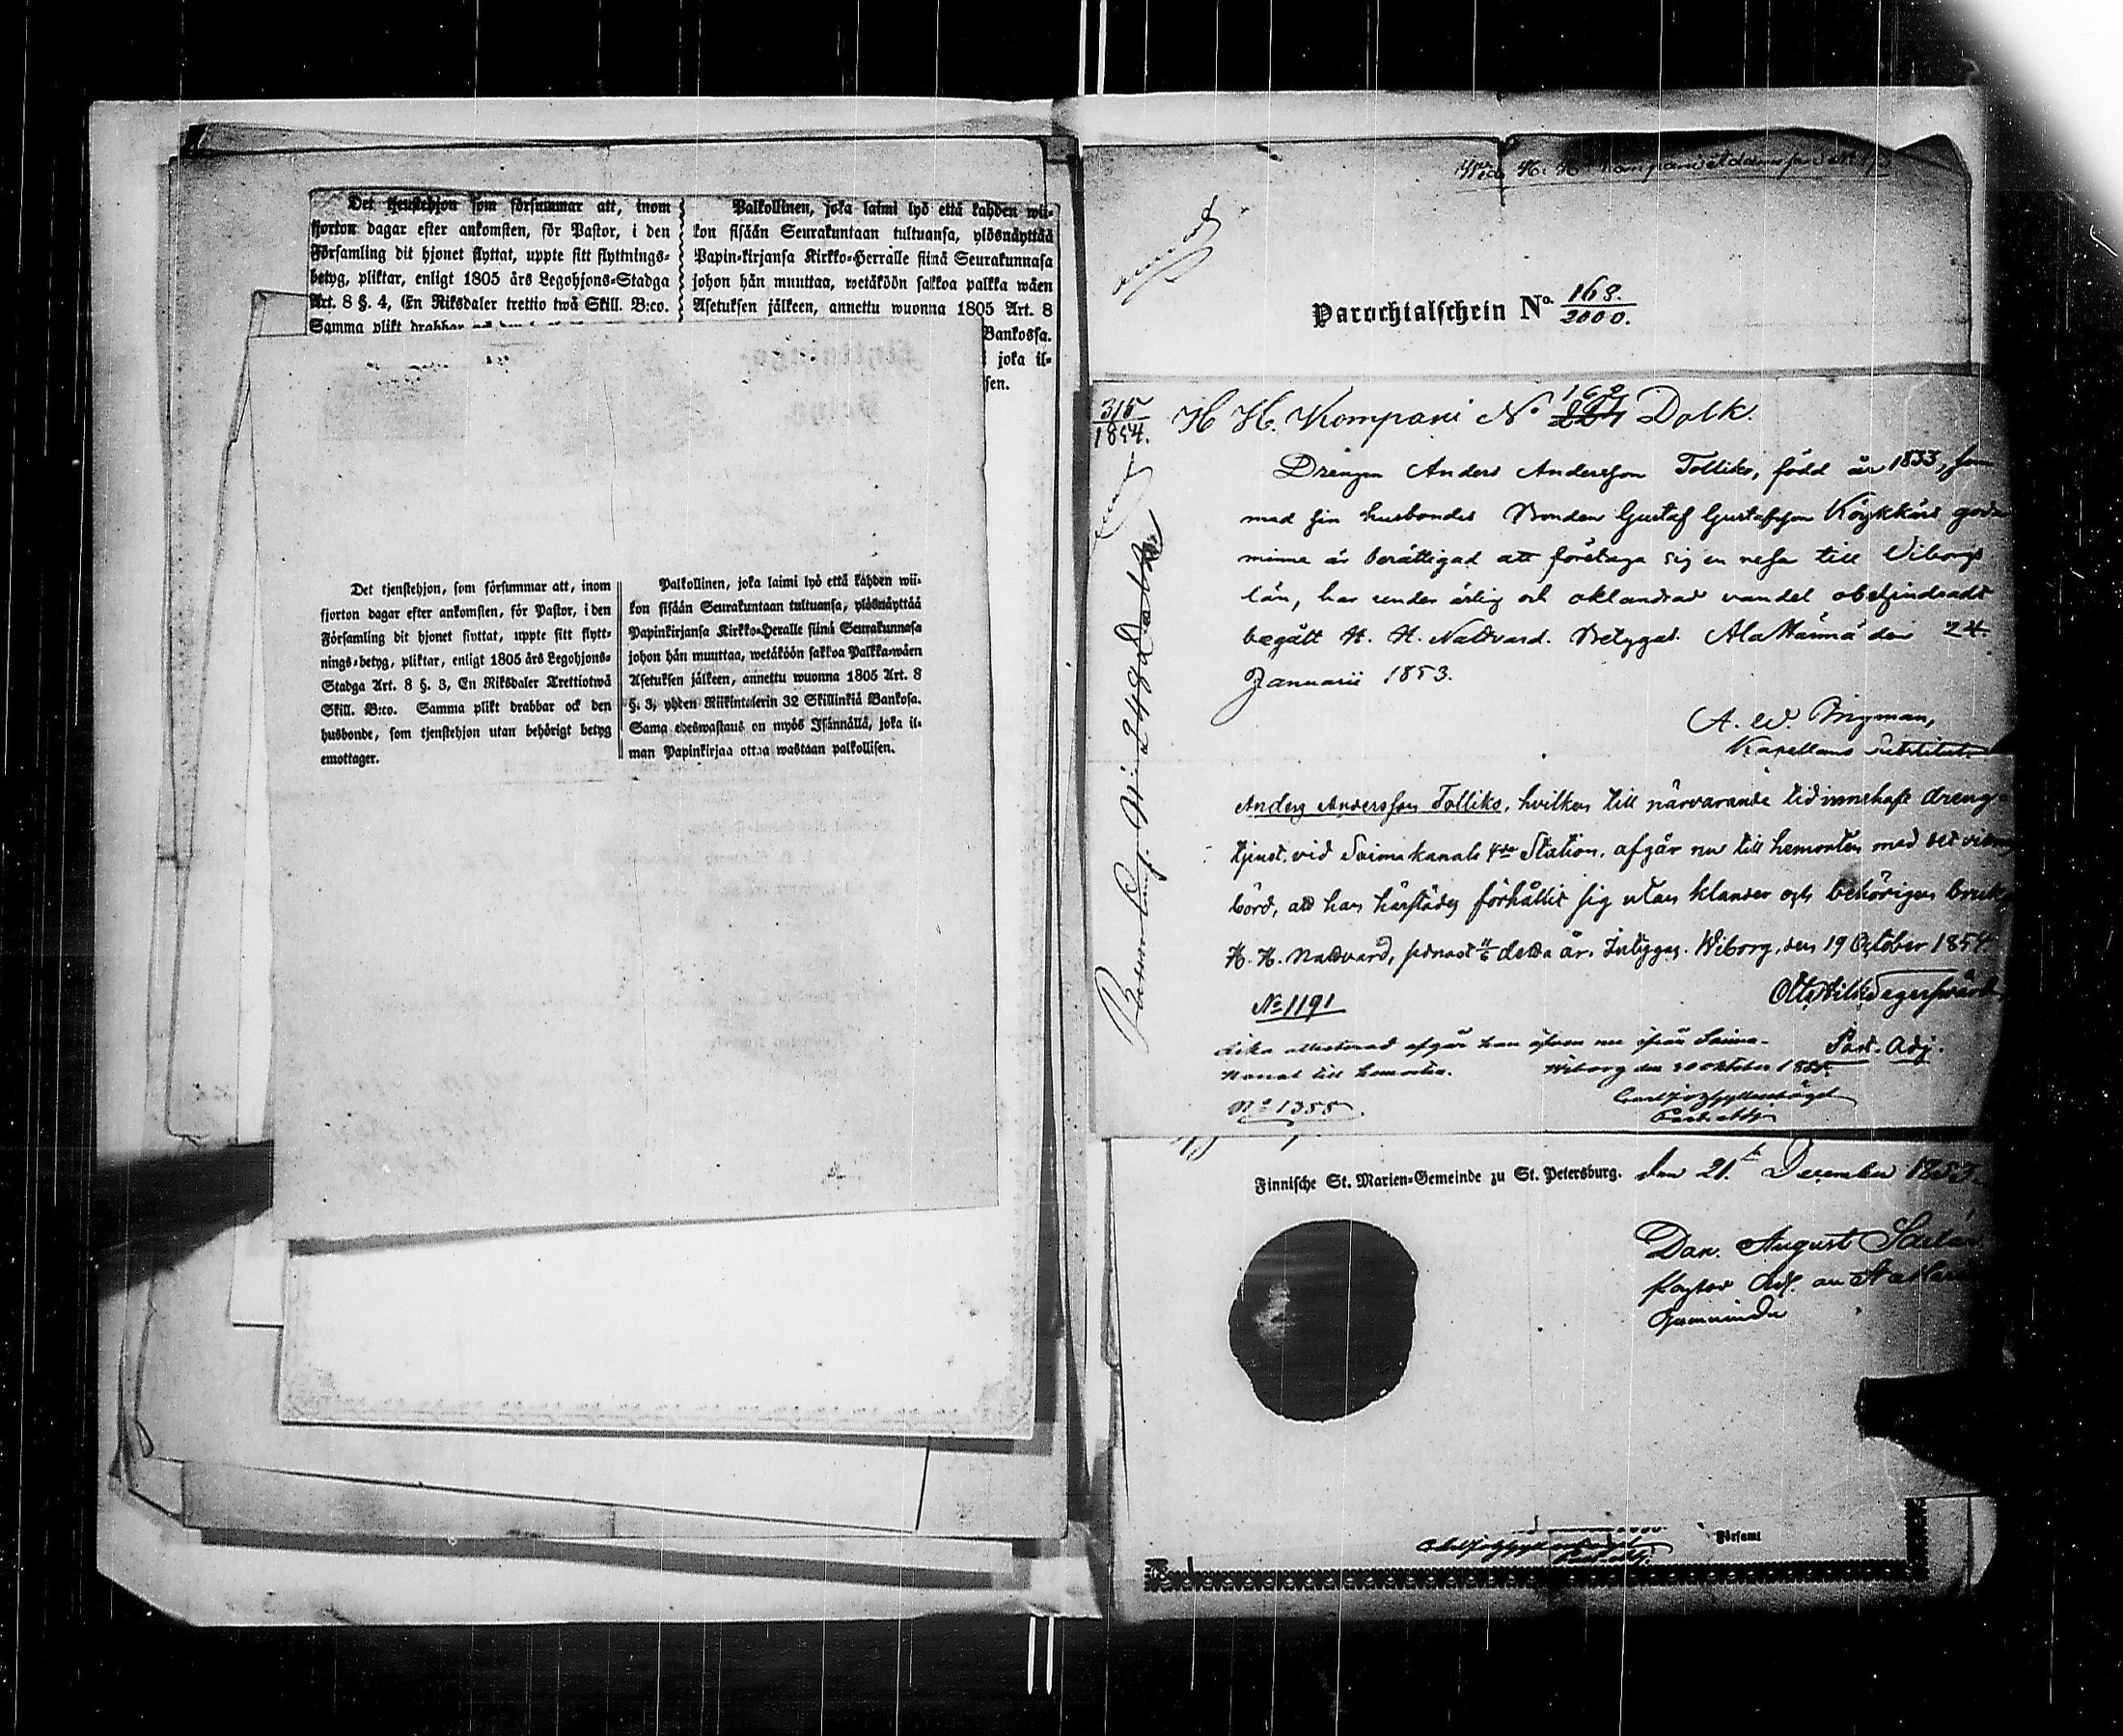 Det tjenstehjon som försummar att, inom
fjorton dagar efter ankomsten, för Pastor, i den
Församling dit hjonet flyttat, uppte sitt flyttnings-
betyg, pliktar, enligt 1805 års Legohjons-Stadga
Art. 8 §. 4, En Riksdaler trettio twå Skill. B:co.
Samma plikt drabbar
Palkollinen, joka laimi lyö että kahden wii-
kon sisään Seurakuntaan tultuansa, ylösnäyttää
Papin-kirjansa Kirkko-Herralle siinä Seurakunnasa
johon hän muuttaa, wetäköön sakkoa palkka wäen
Asetuksen jälkeen, annettu wuonna 1805 Art. 8
Bankossa.
joka il-
sen.
Det tjenstehjon, som försummar att, inom
fjorton dagar efter ankomsten, för Pastor, i den
Församling dit hjonet flyttat, uppte sitt flytt-
nings-betyg, pliktar, enligt 1805 års Legohjons-
Stadga Art. 8 §. 3, En Riksdaler Trettiotwå
Skill. B:co. Samma plikt drabbar ock den
husbonde, som tjenstehjon utan behörigt betyg
emottager.
Palkollinen, joka laimi lyö että kahden wii-
kon sisään Seurakuntaan tultuansa, ylösnäyttää
Papinkirjansa Kirkko-Heralle siinä Seurakunnasa
johon hän muuttaa, wetäköön sakkoa Palkka-wäen
Asetuksen jälkeen, annettu wuonna 1805 Art. 8
§. 3, yhden Riikintalerin 32 Skillinkiä Bankosa.
Sama edeswastaus on myös Isännällä, joka il-
man Papinkirjaa ottaa wastaan palkollisen.
Parochialschein No. 168./2000.
315/1854. H H. Kompani No 168 Dolk.
Drängen Anders Andersson Tolliko, född år 1833, som
med sin husbondes Bonden Gustaf Gustafsson Köykkäris goda
minne är berättigad att företaga sig en resa till Viborgs
län, har under ärlig och oklandrad vandel obehindradt
begått H. H. Nattvard. Betygas. Ala Härmä den 24
Januarii 1853.
A. W. Bryman,
Kapellans Substitut.
Anders Andersson Tolliko, hvilken till närvarande tid innehaft dreng-
tjenst vid Saima kanals 4de Station, afgår nu till hemorten med det vitnes
börd, att han härstädes förhållit sig utan klander och behörigen brukat
H. H. Nattvard, sednast detta år. Intygas. Wiborg, den 19 October 1854.
No 1191
Past. Adj.
Lika attesterad afgår han äfven nu ifrån Saima-
Kanal till hemorten. Wiborg den 20 oktober 1855.
No 1355
Past. adj.
Finnische St. Marien-Gemeinde zu St. Petersburg. den 21. December 1853.
Dan. August
Pastor Adj. an St Marien
Gemeinde
Församl